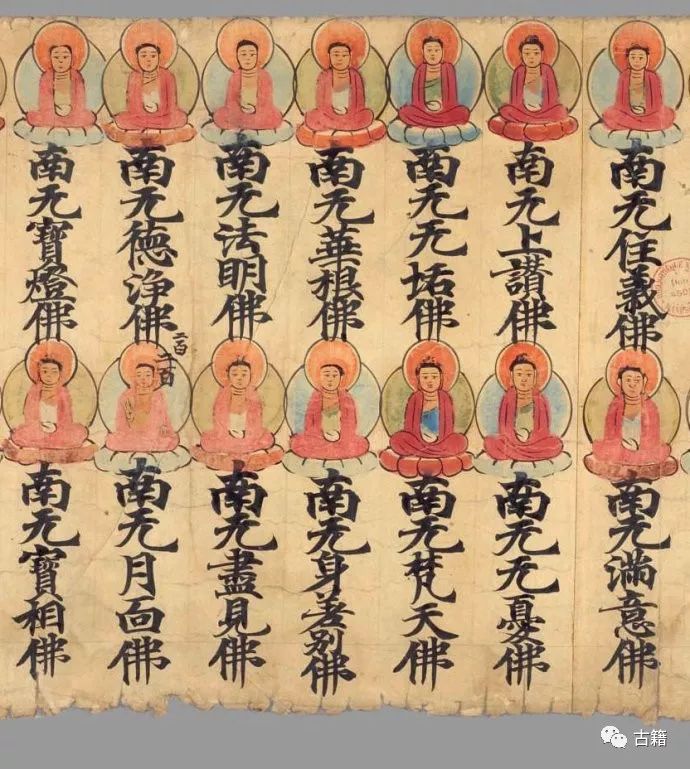 南无住義佛
南无滿意佛
南无上讃佛
南无无憂佛
南无无垢佛
南无梵天佛
南无華根佛
南无身差別佛
南无法明佛
南无盡見佛
南无德净佛
南无月面佛
南无寶燈佛
南无寶相佛
古籍